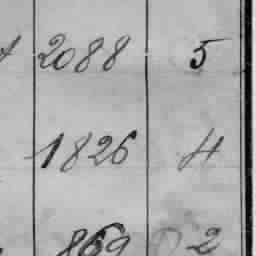 2088 5
1826 4
869 2